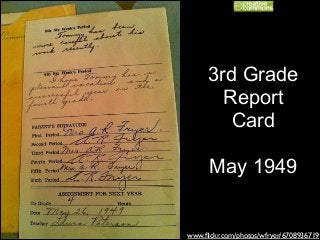 creative
commons
5th Six Week's Period
Tommy has been
more careful about his
work recently.
6th Six Week's Period
I hope Tommy has a
pleasant vacation and a
successful year in the
fourth grade.
PARENT'S SIGNATURE:
First Period Mrs. A. R. Fryer
Second Period A. R. Fryer
Third Period Mrs. A. R. Fryer
Fourth Period A. R. Fryer
Fifth Period Mrs. A. R. Fryer
Sixth Period A. R. Fryer
ASSIGNMENT FOR NEXT YEAR
To Grade 4 Room
Date May 26, 1949
Teacher Laura Peterson
3rd Grade
Report
Card
May 1949
www.flickr.com/photos/wfryer/6708936719